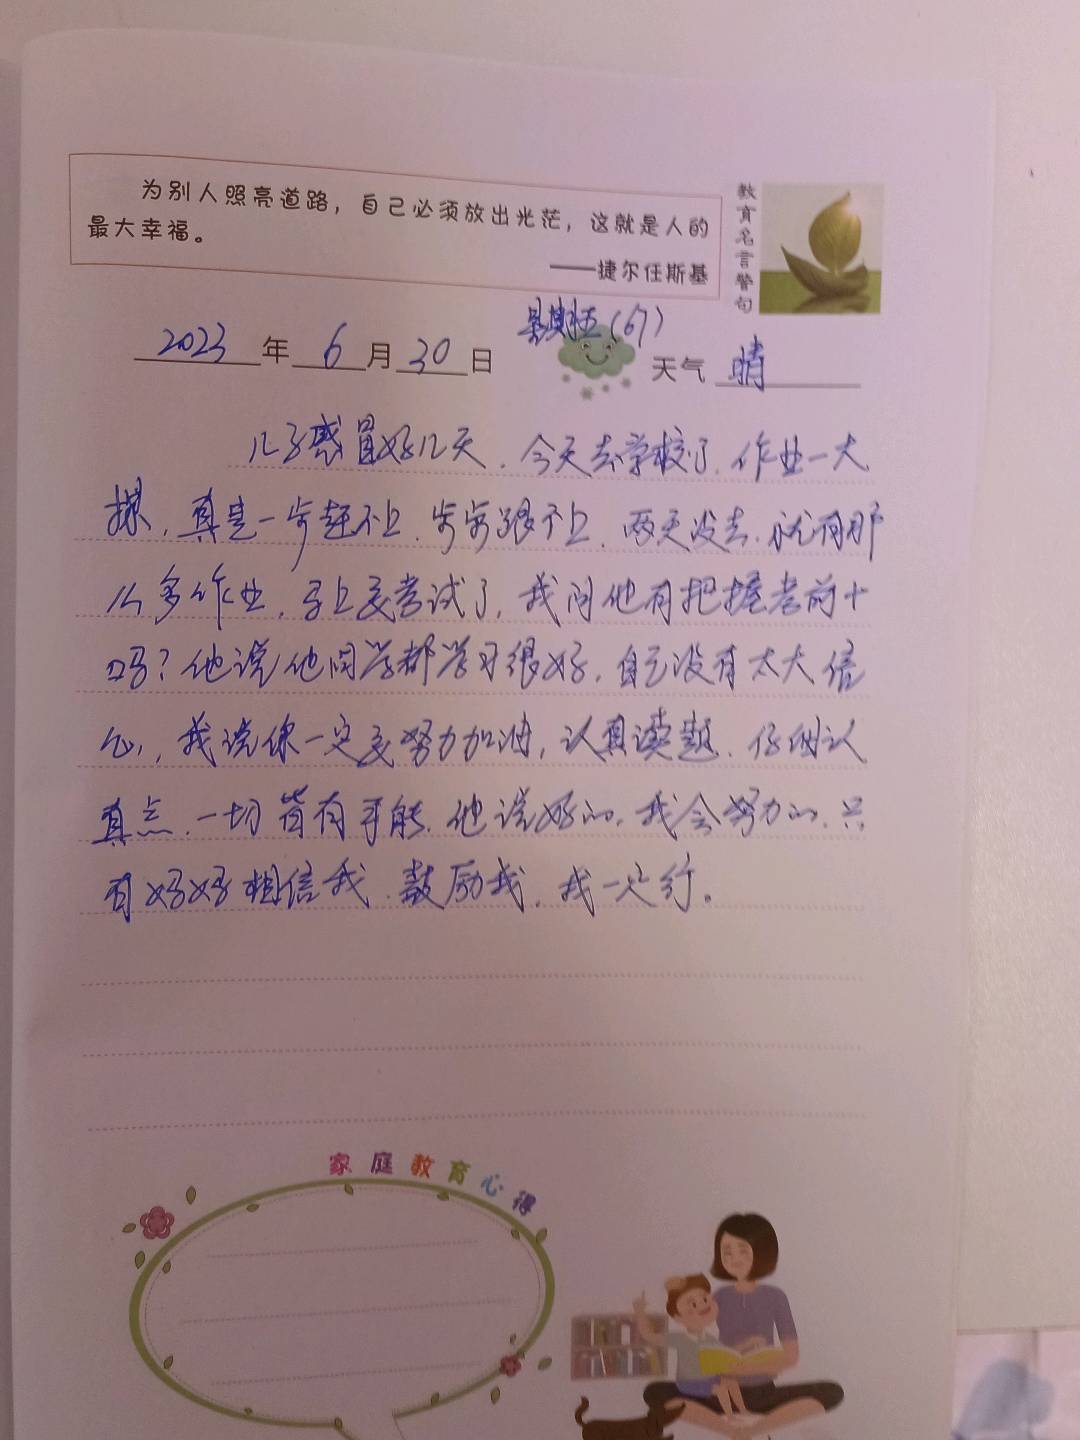 为别人照亮道路，自己必须放出光芒，这就是人的
最大幸福。
——捷尔任斯基
教育名言警句
星期五（67）
2023年6月30日 天气 晴
儿子感冒好几天，今天去学校了，作业一大
摞，真是一步赶不上，步步跟不上，两天没去，就有那
么多作业，马上要考试了，我问他有把握考前十
吗？他说他同学都学习很好，自己没有太大信
心，我说你一定要努力加油，认真读题，仔细认
真点，一切皆有可能，他说好的，我会努力的，只
有好好相信我，鼓励我，我一定行。
家庭教育心得